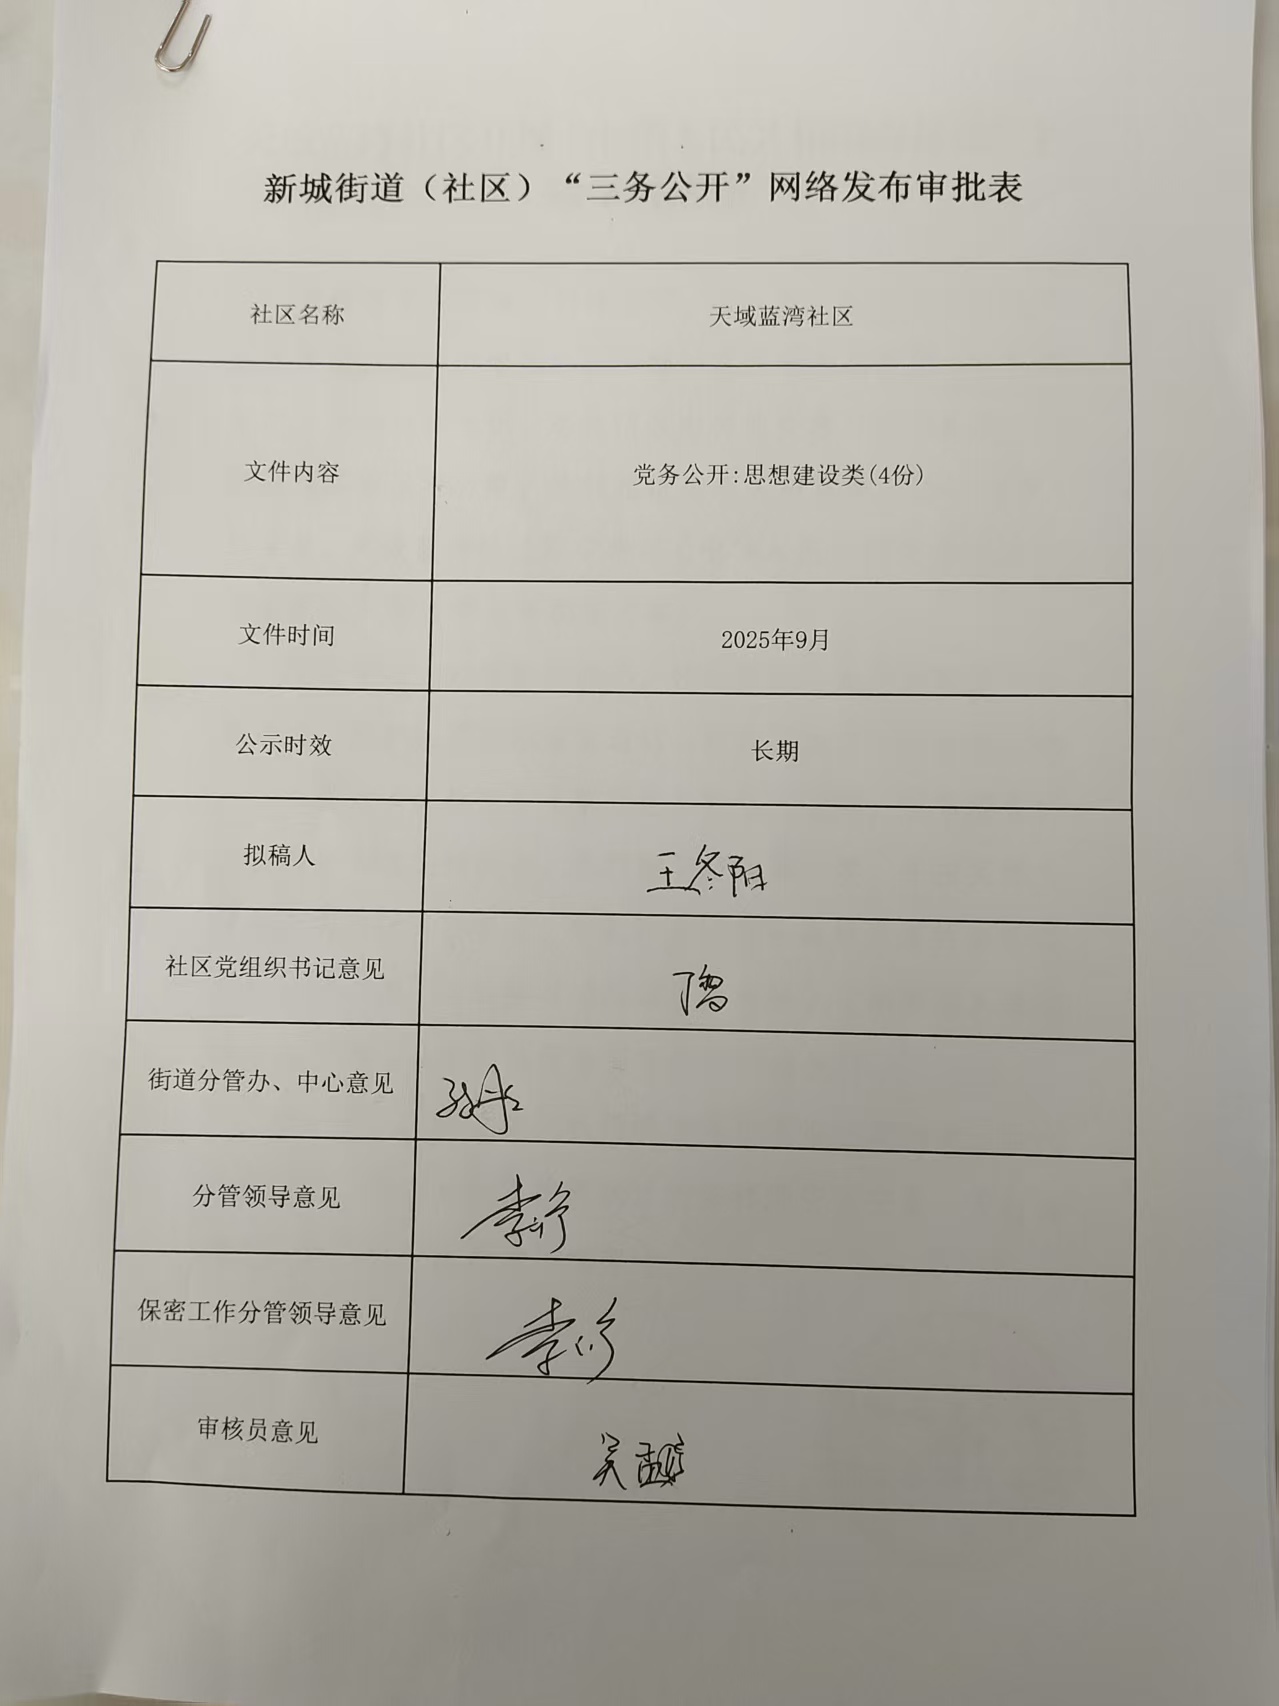 新城街道（社区）“三务公开”网络发布审批表
社区名称 天域蓝湾社区
文件内容 党务公开:思想建设类(4份)
文件时间 2025年9月
公示时效 长期
拟稿人 王冬阳
社区党组织书记意见
街道分管办、中心意见
分管领导意见
保密工作分管领导意见
审核员意见 吴